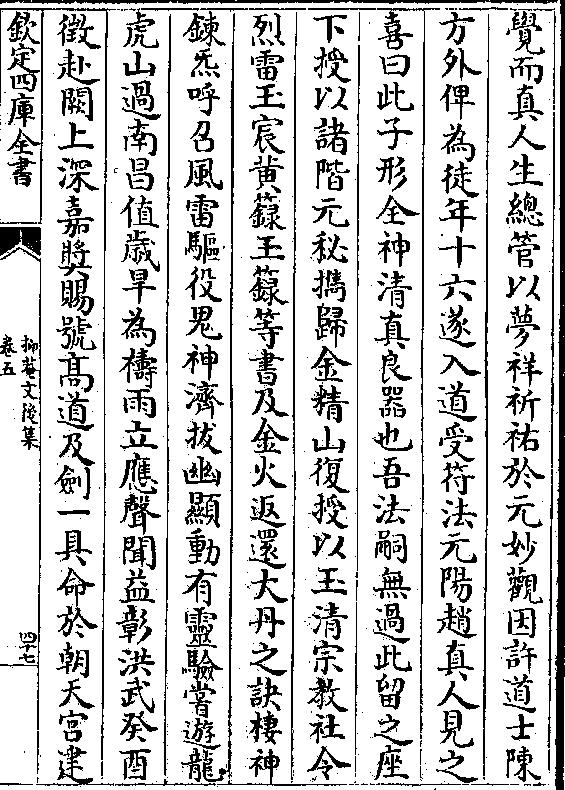 覺而真人生總管以夢祥祈祐於元妙觀因許道士陳
方外俾為徒年十六遂入道受符法元陽趙真人見之
喜曰此子形全神清真良器也吾法嗣無過此留之座
下授以諸階元秘擕歸金精山復授以玉清宗教社令
烈雷玉宸黄籙玉籙等書及金火返還大丹之訣棲神
鍊炁呼召風雷驅役鬼神濟拔幽顯動有靈驗嘗遊龍
虎山過南昌值歲旱為禱雨立應聲聞益彰洪武癸酉
徵赴闕上深嘉奬賜號髙道及劍一具命於朝天宮建
欽定四庫全書
抑菴文後集
卷五
四十七